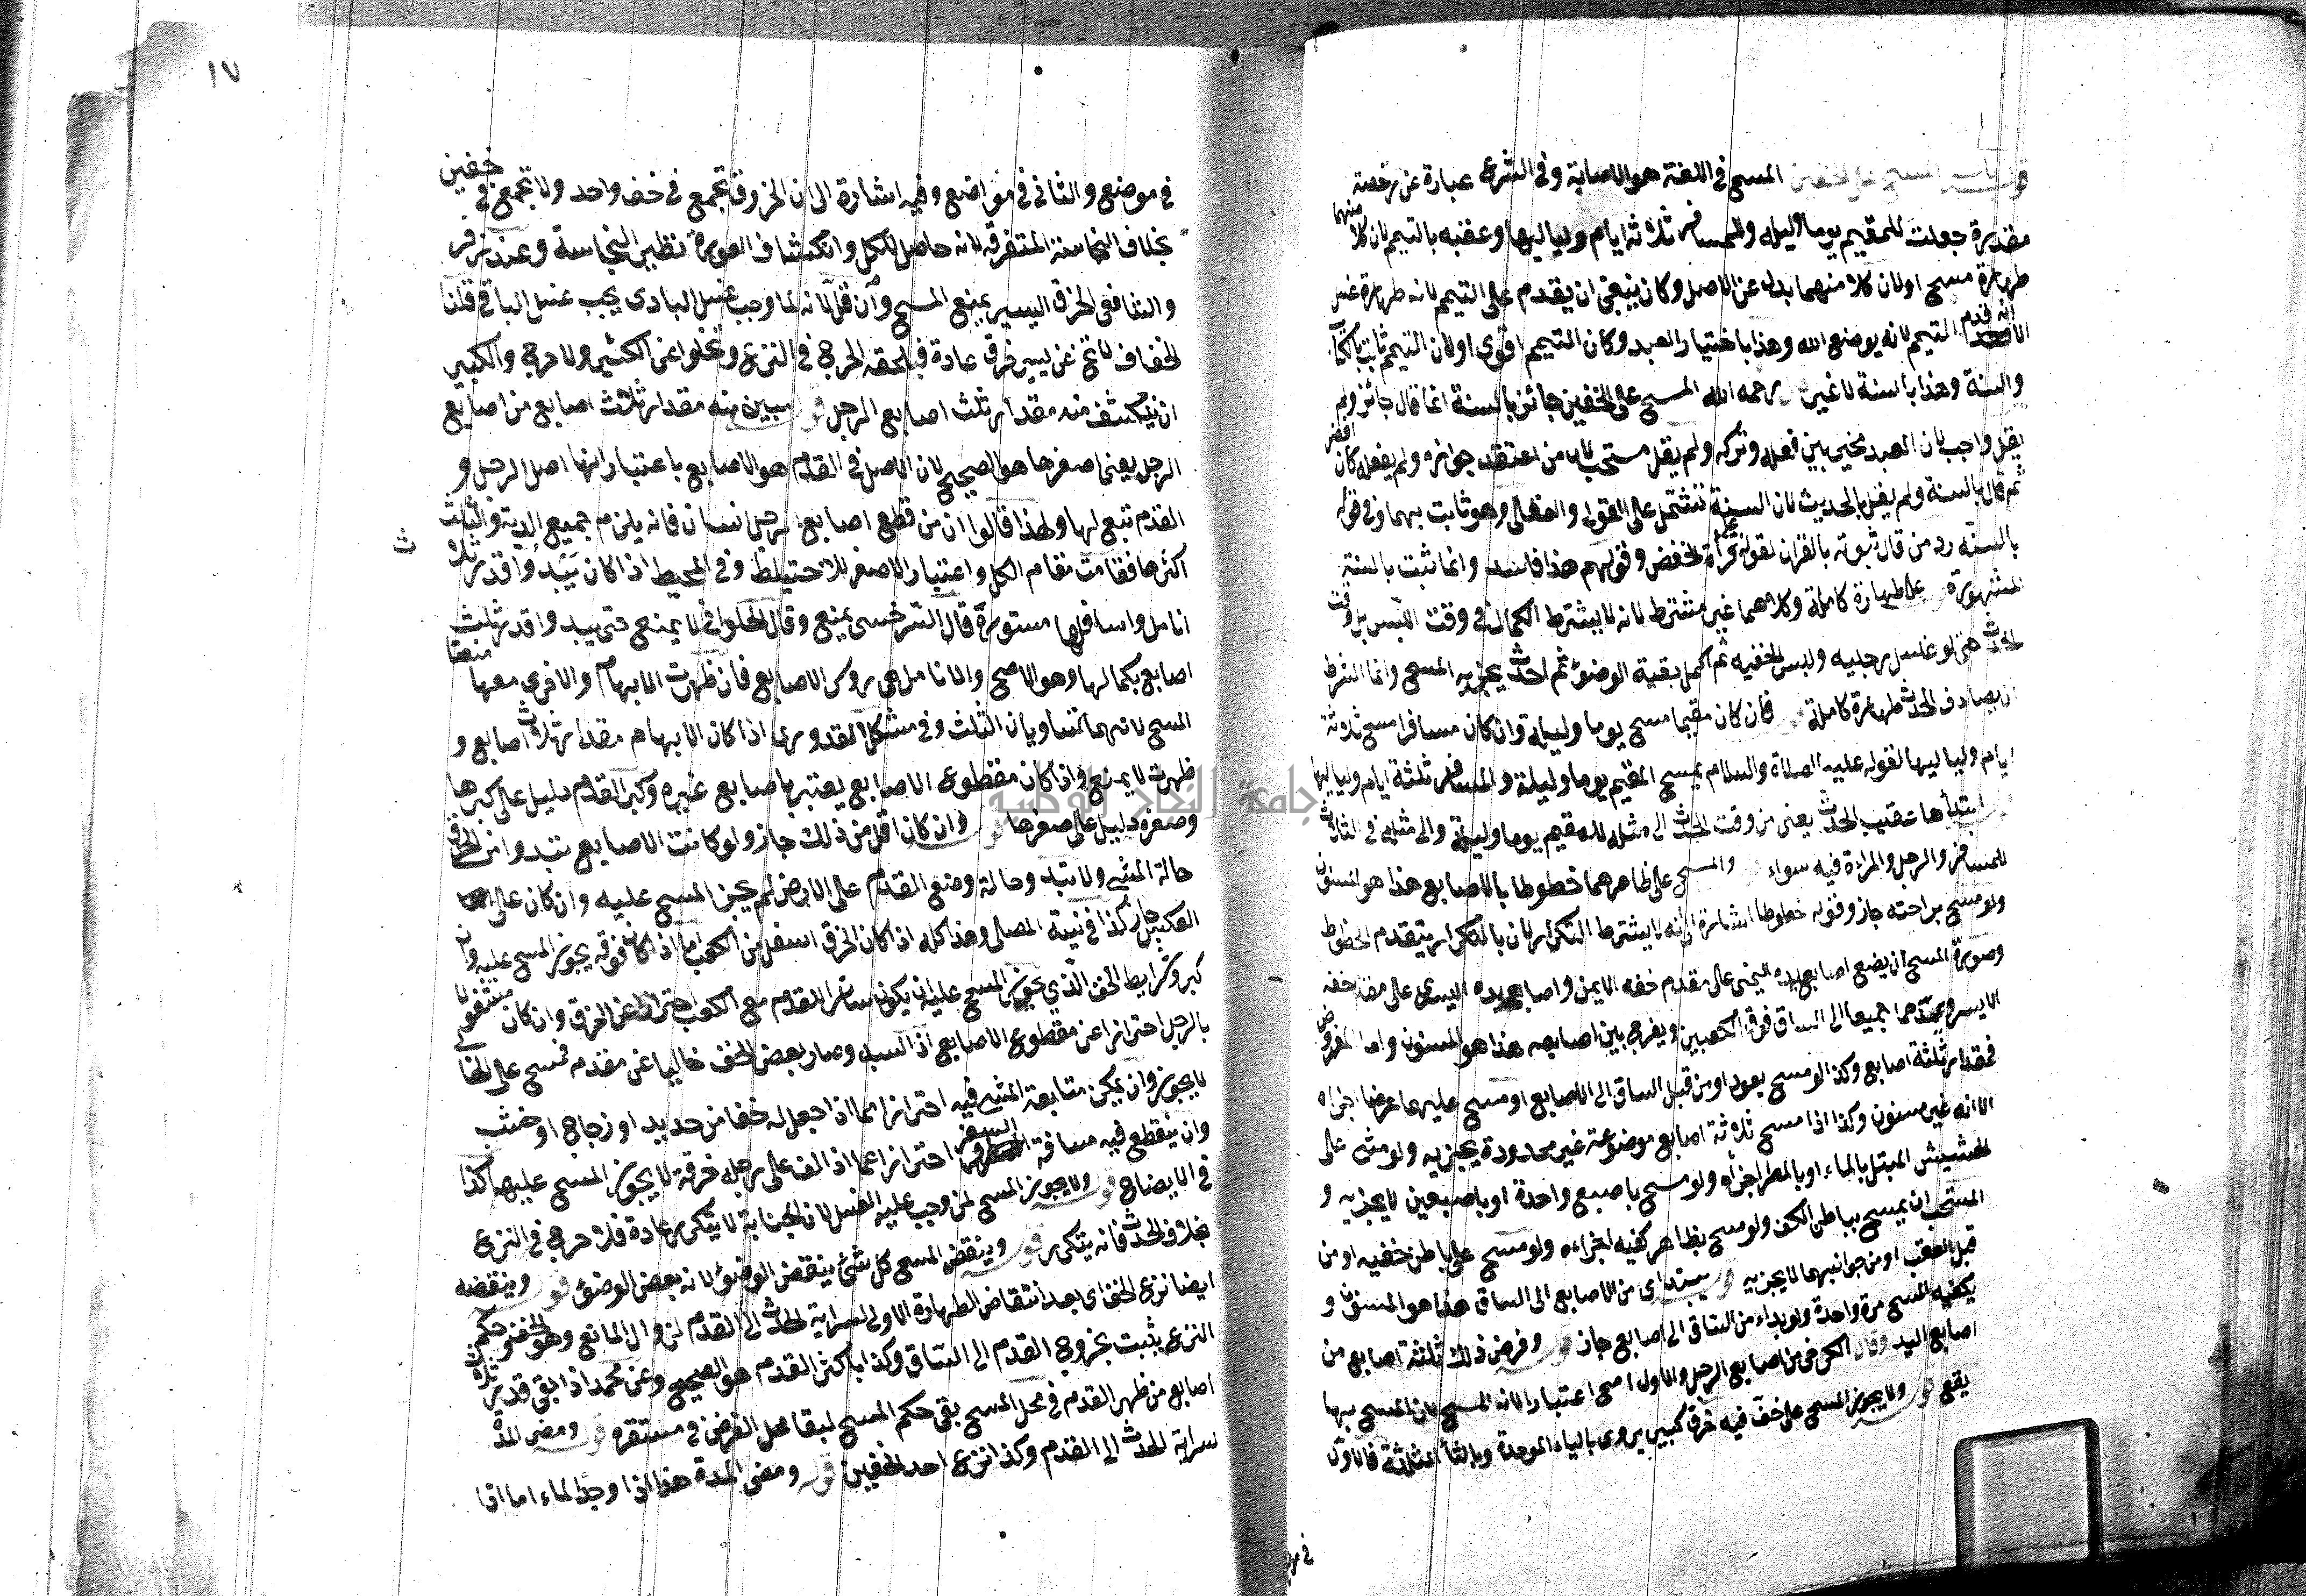 قوله باب المسح على الخفين المسح في اللغة هو الاصابة وفي الشرع عبارة عن رخصة
مقدرة جعلت للمقيم يوما وليلة وللمسافر ثلاثة ايام ولياليها وعقبه بالتيمم لان كلا منهما
طهارة مسح او لان كلا منهما بدل عن الاصل وكان ينبغي ان يقدم على التيمم لانه طهارة غسل
الا انه قدم التيمم لانه بوضع الله وهذا باختيار العبد وكان التيمم اقوى او لان التيمم ثابت بالكتاب
والسنة وهذا بالسنة لا غير قوله رحمه الله المسح على الخفين جائز بالسنة انما قال جائز ولم
يقل واجب لان العبد مخير بين فعله وتركه ولم يقل مستحب لان من اعتقد جوازه ولم يفعله كان افضل
ثم قال بالسنة ولم يقل بالحديث لان السنة تشتمل على القول والفعل وهو ثابت بهما وفي قوله
بالسنة رد من قال ثبوته بالقران لقوله على قراة الخفض وقولهم هذا فاسد وانما ثبت بالسنة
المشهورة على طهارة كاملة وكلاهما غير مشترط لانه لا يشترط الكمال في وقت اللبس بل وقت
الحدث حتى لو غسل رجليه ولبس الخفيه ثم اكمل بقية الوضوء ثم احدث يجزيه المسح وانما الشرط
ان يصادف الحدث طهارة كاملة قوله فان كان مقيما مسح يوما وليلة وان كان مسافرا مسح ثلاثة
ايام ولياليها لقوله عليه الصلاة والسلام يمسح المقيم يوما وليلة والمسافر ثلثة ايام ولياليها
قوله ابتداها عقيب الحدث يعني من وقت الحدث الى مثله للمقيم يوما وليلة والى مثله في الثالث
للمسافر والرجل والمراة فيه سواء قوله والمسح على ظاهرهما خطوطا بالاصابع هذا هو المسنون
ولو مسح براحته جاز وقوله خطوطا اشارة الى انه لا يشترط التكرار لان بالتكرار يتقدم الخطوط
وصورة المسح ان يضع اصابع يده اليمنى على مقدم خفه الايمن واصابع يده اليسرى على مقدم خفه
الايسر ويمدهما جميعا الى الساق فوق الكعبين ويفرج بين اصابعه هذا هو المسنون واما المفروض
فمقدار ثلثة اصابع وكذا لو مسح بعود او من قبل الساق الى الاصابع او مسح عليهما عرضا اجزاه
الا انه غير مسنون وكذا اذا مسح ثلاثة اصابع موضوعة غير محدودة يجزيه ولو مشى على
الحشيش المبتل بالماء او بالمطر اجزاه ولو مسح باصبع واحدة او باصبعين لا يجزيه و
المستحب ان يمسح بباطن الكف ولو مسح بظاهر كفيه اجزاه ولو مسح على باطن خفيه او من
قبل العقب او من جوانبهما لا يجزيه قوله يبتداى من الاصابع الى الساق هذا هو المسنون و
يكفيه المسح مرة واحدة ولو بداء من الساق الى اصابع جاز قوله وفرض ذلك ثلثة اصابع من
اصابع اليد وقال الكرخي من اصابع الرجل والاول اصح اعتبارا لالة المسح لان المسح بها
يقع قوله ولا يجوز المسح على خف فيه خرق كبير يروى بالباء الموحدة وبالثاء المثلثة فالاول
في موضع
١٧
في موضع والثاني في مواضع وفيه اشارة الى ان الخروق تجمع في خف واحد ولا تجمع في خفين
بخلاف النجاسة المتفرقة لانه حاصل للكل وانكشاف العورة نظير النجاسة وعند زفر
والشافعي الخرق اليسير يمنع المسح وان قل لانه لما وجب غسل البادي يجب غسل الباقي قلنا
الخفاف لا تخ عن يسير خرق عادة فيلحقه الحرج في النزع وتخلوا عن الكثير ولا حرج والكبير
ان ينكشف منه مقدار ثلث اصابع الرجل قوله يبين منه مقدار ثلاث اصابع من اصابع
الرجل يعني اصغرها هو الصحيح لان الاصل في القدم هو الاصابع باعتبار انها اصل الرجل و
القدم تبع لها ولهذا قالوا ان من قطع اصابع رجل انسان فانه يلزم جميع الدية والثلث
اكثرها فقامت مقام الكل واعتبار الاصغر للاحتياط وفي المحيط اذا كان يبدوا قدر ثلاث
انامل واسافلها مستورة قال السرخسي يمنع وقال الحلواني لا يمنع حتى يبدوا قدر ثلث
اصابع بكمالها وهو الاصح والانامل هي روس الاصابع فان ظهرت الابهام والاخرى معها منعتا
المسح لانهما تساويان الثلث وفي مشكل القدوري اذا كان الابهام مقدار ثلاث اصابع و
ظهرت لا يمنع واذا كان مقطوع الاصابع يعتبر باصابع غيره وكبر القدم دليل على كبرها
وصغره دليل على صغرها قوله وان كان اقل من ذلك جاز ولو كانت الاصابع تبدوا من الخرق
حالة المشي ولا تبدو حالة وضع القدم على الارض لم يجز المسح عليه وان كان على
العكس جاز كذا في نية المصلى وهذا كله اذا كان الخرق اسفل من الكعب اما اذا كان فوقه يجوز المسح عليه وان
كبر وشرايط الخف الذي يجوز المسح عليه ان يكون ساتر القدم مع الكعب احترازا عن الخرق وان كان مشغولا
بالرجل احترازا عن مقطوع الاصابع اذا لبسه وصار بعض الخف خاليا عن مقدمه فمسح على الخالي
لا يجوز وان يمكن متابعة المشي فيه احترازا مما اذا جعل له خفا من حديد او زجاج او خشب
وان ينقطع فيه مسافة السفر احترازا عما اذا لف على رجله خرقة لا يجوز المسح عليها كذا
في الايضاح قوله ولا يجوز المسح لمن وجب عليه الغسل لان الجنابة لا يتكرر عادة فلا حرج في النزع
بخلاف الحدث فانه يتكرر قوله وينقض المسح كل شئ ينقض الوضوء لانه بعض الوضوء قوله وينقضه
ايضا نزع الخف اى بعد انتقاض الطهارة الاولى لسراية الحدث الى القدم لزوال المانع وهو الخف وحكم
النزع يثبت بخروج القدم الى الساق وكذا باكثر القدم هو الصحيح وعن محمد اذا بقي قدر ثلاث
اصابع من ظهر القدم في محل المسح بقي حكم المسح لبقا محل الفرض في مستقره قوله ومضى المدة
لسراية الحدث الى القدم وكذا نزع احد الخفين قوله ومضى المدة هذا اذا وجد الماء اما اذا